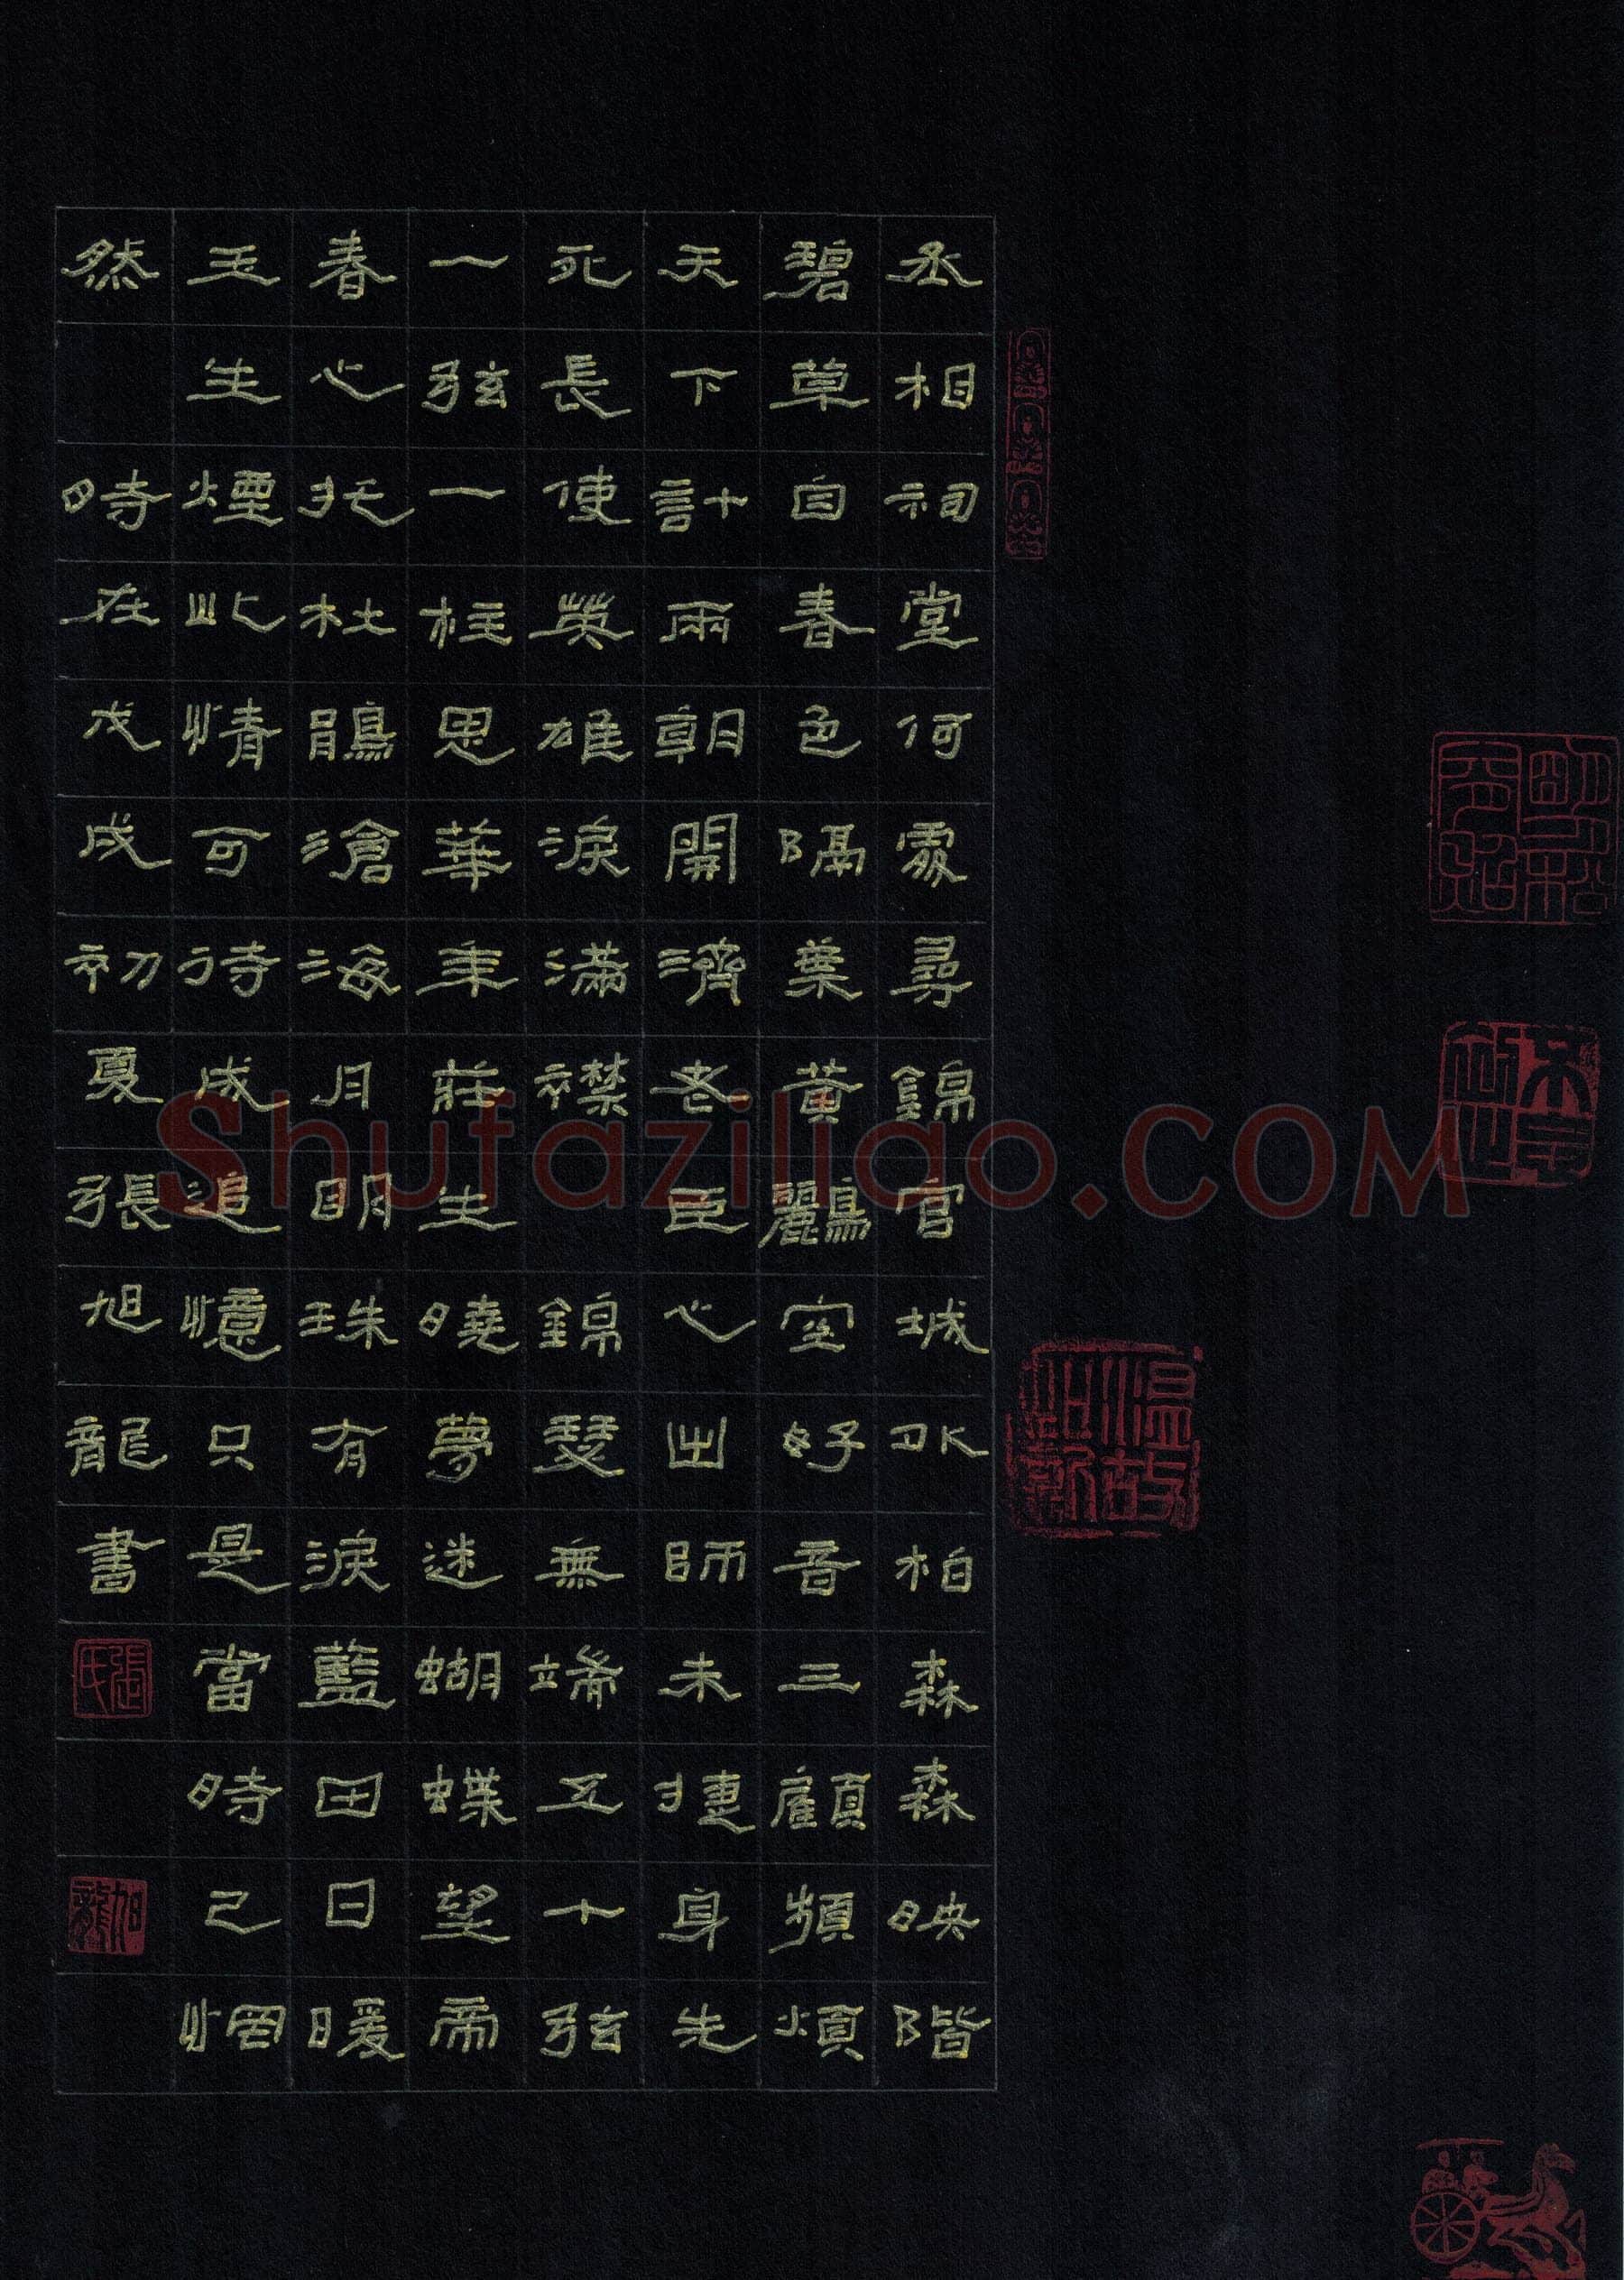 丞相祠堂何處尋錦官城外柏森森映階
碧草自春色隔葉黃鸝空好音三顧頻煩
天下計兩朝開濟老臣心出師未捷身先
死長使英雄淚滿襟 錦瑟無端五十弦
一弦一柱思華年莊生曉夢迷蝴蝶望帝
春心托杜鵑滄海月明珠有淚藍田日暖
玉生煙此情可待成追憶只是當時已惘
然 時在戊戌初夏張旭龍書
張氏
旭龍
溫故知新
Shufaziliao.COM